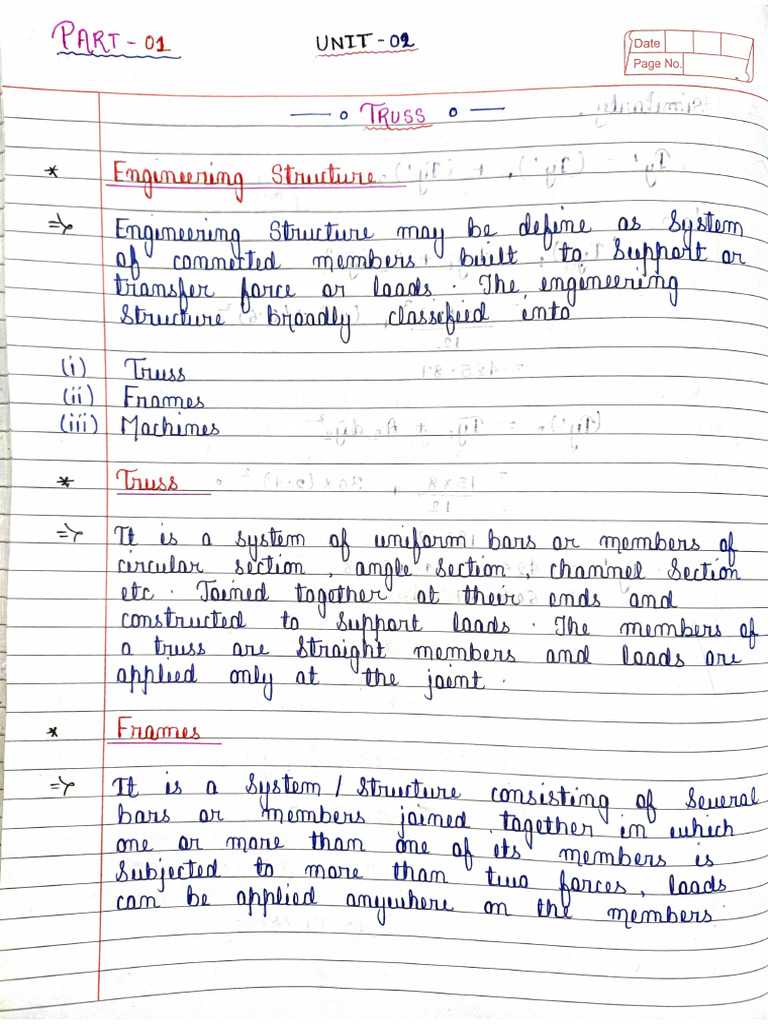 PART - 01 UNIT - 02
Date
Page No.
TRUSS
* Engineering Structure
⇒ Engineering Structure may be define as System
of connected members built to Support or
transfer force or loads. The engineering
Structure broadly classified into
(i) Truss
(ii) Frames
(iii) Machines
* Truss
⇒ It is a system of uniform bars or members of
circular section, angle section, channel Section
etc. Joined together at their ends and
constructed to support loads. The members of
a truss are straight members and loads are
applied only at the joint.
* Frames
⇒ It is a System / Structure consisting of Several
bars or members joined together in which
one or more than one of its members is
Subjected to more than two forces, loads
can be applied anywhere on the members